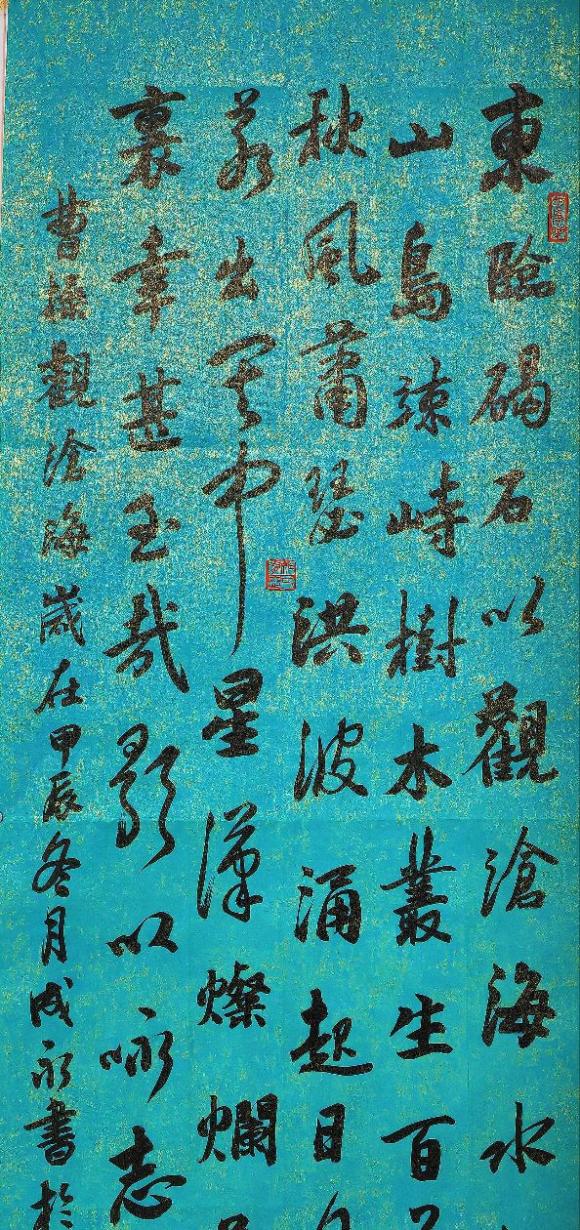 東臨碣石以觀滄海水
山島竦峙樹木叢生百
秋風蕭瑟洪波涌起日
若出其中星漢燦爛
裏幸甚至哉歌以咏志
曹操觀滄海歲在甲辰冬月成永書於